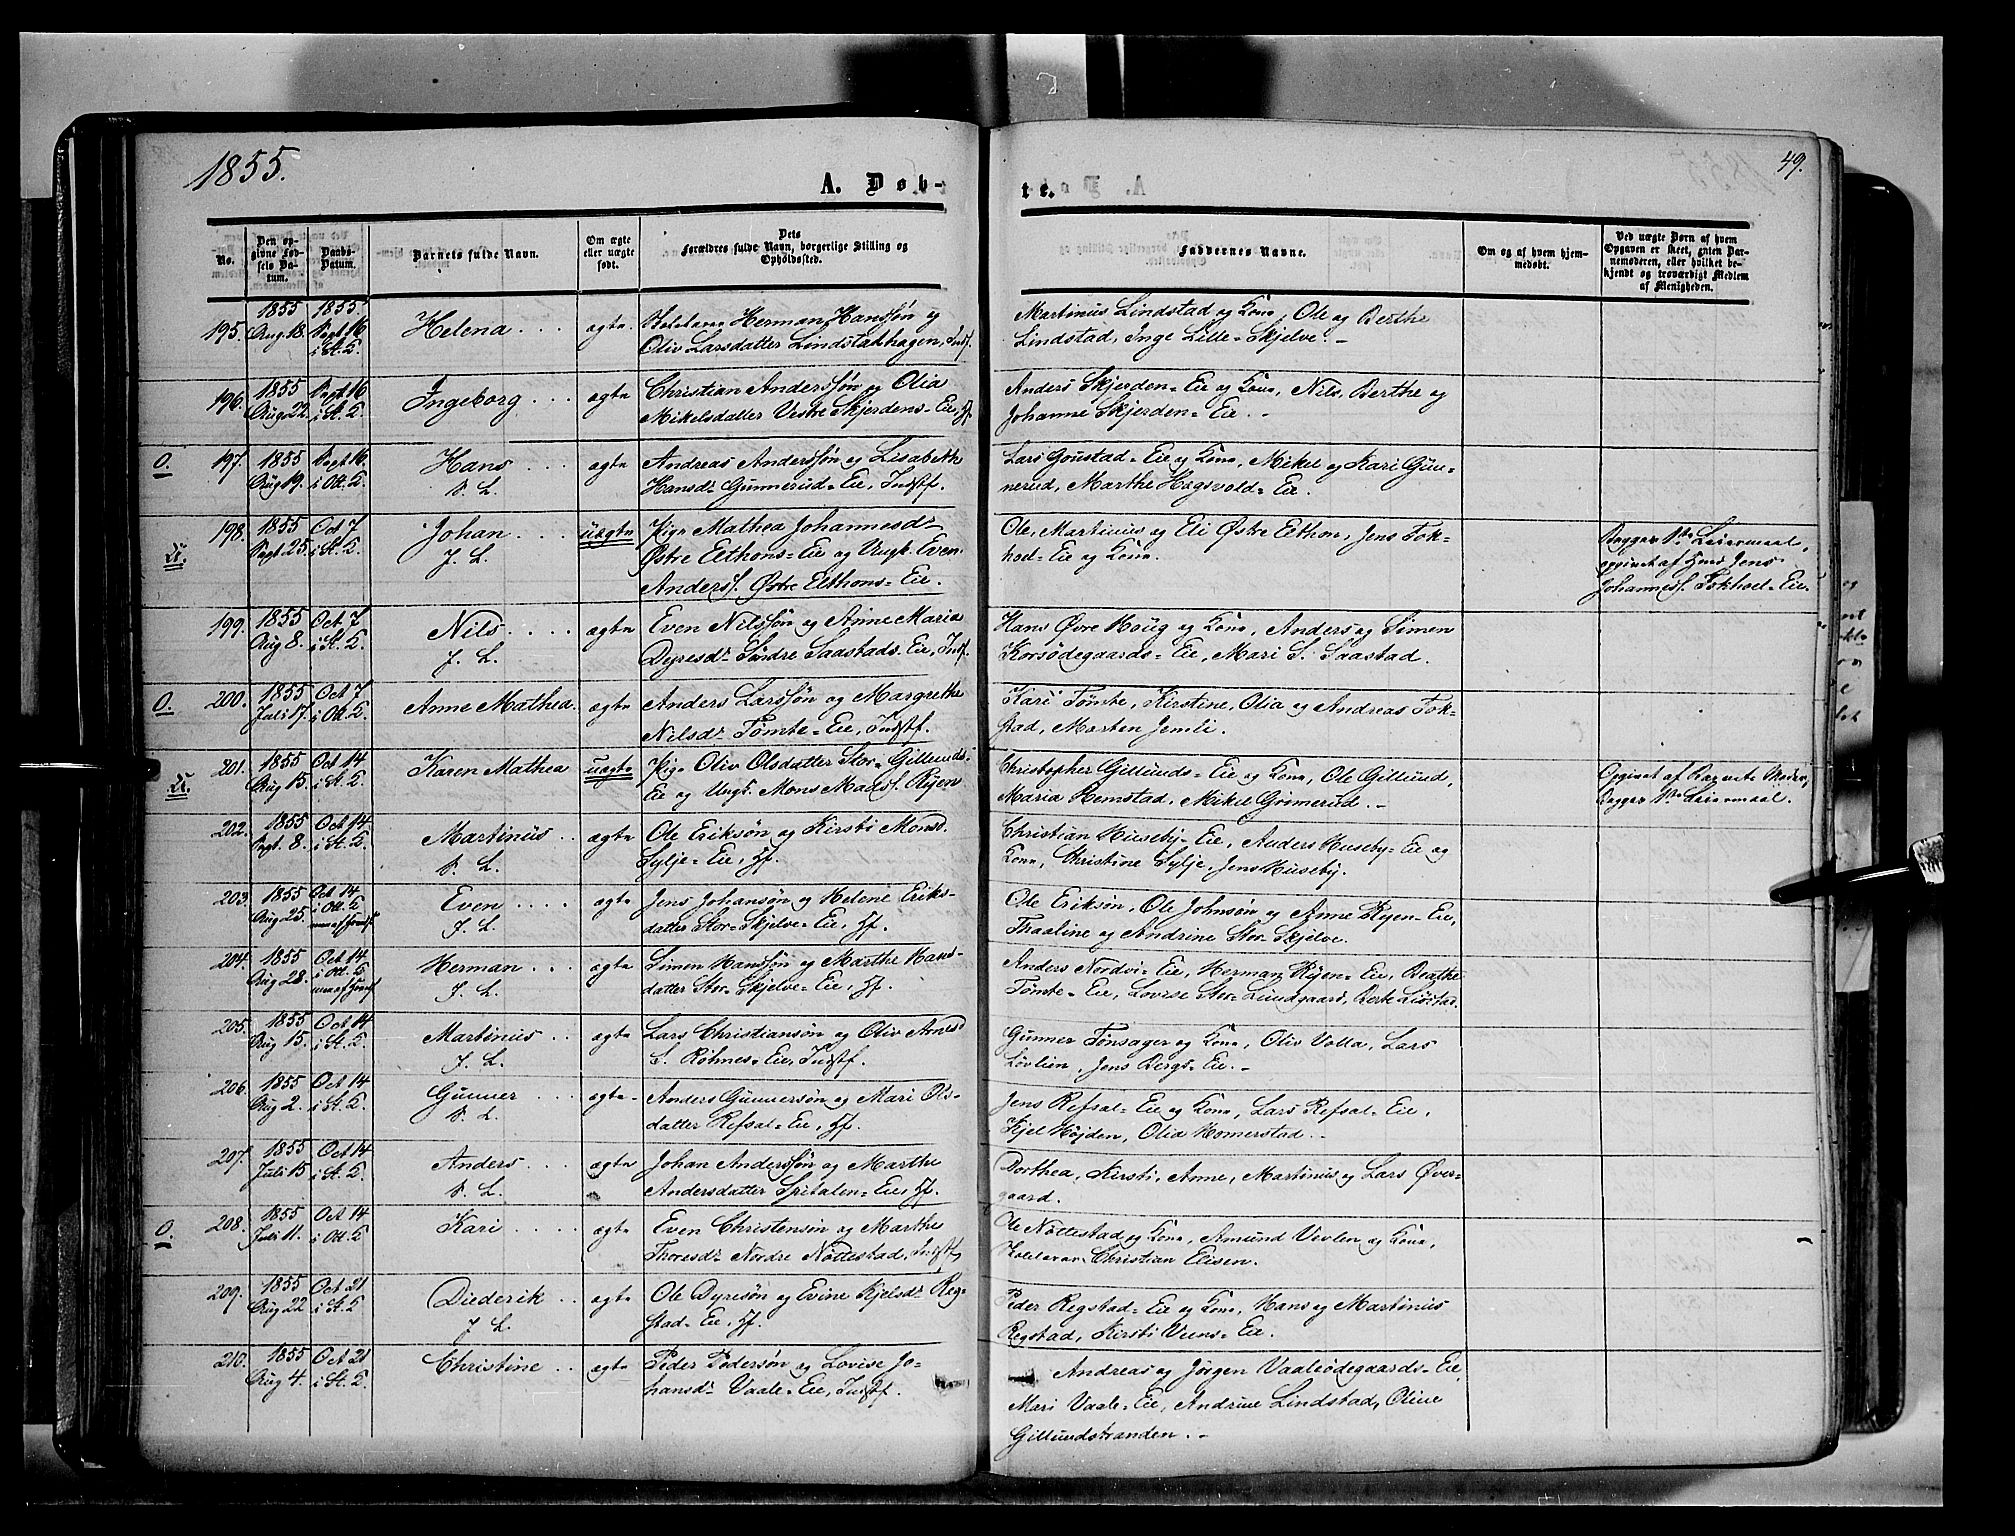 1855.
A. Døb-
te.
49.
No.
Den op-
givne Fød-
sels Da-
tum.
Daabs-
Datum.
Barnets fulde Navn.
Om ægte
eller uægte
født.
Dets
Forældres fulde Navn, borgerlige Stilling og
Opholdssted.
Faddernes Navne.
Om og af hvem hjem-
medøbt.
Ved uægte Børn af hvem
Opgaven er skeet, enten Bar-
nemoderen, eller hvilket be-
kjendt og troværdigt Medlem
af Menigheden.
195. 1855 Aug. 18. 1855 Sept 16 i St. K. Helena ægte
Herman Hanssøn og
Oliv Larsdatter Lindstadhagen, Indf.
Martinus Lindstad og Kone, Ole og Berthe
Lindstad, Inge Lille-Skjelve.
196. 1855 Aug. 22. Sept 16 i St. K. Ingeborg ægte
Christian Anderssøn og Olia
Mikelsdatter Vestre Skjerdens-Eie, Hf.
Anders Skjerden-Eie og Kone, Nils, Berthe og
Johanne Skjerden-Eie.
O. 197. 1855 Aug 19. Sept 16. i Ott. K. Hans ægte
Andreas Anderssøn og Lisabeth
Hansdr Gunnerud-Eie, Indstf.
Lars Goustad-Eie og Kone, Mikel og Kari Gun-
nerud, Marthe Hagsvold-Eie.
198. 1855 Sept. 25. Oct 7 i St. K. Johan J. L. uægte
Pige Mathea Johannesdr
Østre Elthons-Eie og Ungk. Even
Anderss. Østre Elthons-Eie.
Ole, Martinus og Eli Østre Elthon, Jens Fok-
hol-Eie og Kone.
Begges 1ste Leiermaal,
opgivet af Jens
Johanness. Fokhol-Eie.
199. 1855 Aug 8. Oct 7 i St. K. Nils J. L. ægte
Even Nilssøn og Anne Maria
Dyresdr Søndre Saastads-Eie, Indf.
Hans Øvre Houg og Kone, Anders og Simen
Korsødegaards-Eie, Mari S. Saastad.
O. 200. 1855 Juli 17. Oct 7 i Ott. K. Anne Mathea. ægte
Anders Larssøn og Margrethe
Nilsdr Tømte-Eie, Indstf.
Kari Tømte, Kirstine, Olia og Andreas Fok-
stad, Marten Jemli.
201. 1855 Aug 15. Oct 14 i St. K. Karen Mathea uægte
Pige Oliv Olsdatter Stor-Gillunds-
Eie og Ungk. Mons Monss. Ryen
Christopher Gillunds-Eie og Kone, Ole Gillund,
Maria Remstad, Mikel Goinerud.
Opgivet af Barnets Moder,
Begges 1ste Leiermaal.
202. 1855 Sept. 8. Oct 14 i St. K. Martinus ægte
Ole Eriksøn og Kirsti Monsd.
Sylje-Eie, Hf.
Christian Huseby-Eie, Anders Huseby-Eie og
Kone, Christine Sylje, Jens Huseby.
203. 1855 Aug 25. Oct 14 i Ott. K. Even J. L. ægte
Jens Johansøn og Helene Eriks-
datter Stor-Skjelve-Eie, Hf.
Ole Eriksøn, Ole Johnsøn og Anne Ryen-Eie,
Thaaline og Andrine Stor-Skjelve.
204. 1855 Aug 28. Oct 14 i Ott. K. Herman J. L. ægte
Simen Hanssøn og Marthe Hans-
datter Stor-Skjelve-Eie, Hf.
Anders Nordvi-Eie, Herman Ryen-Eie, Beathe
Tømte-Eie, Lovise Stor-Lundgaard,
205. 1855 Aug 15. Oct 14 i St. K. Martinus J. L. ægte
Lars Christiansøn og Oliv Arnesd
S. Røhnes-Eie, Indstf.
Gunner Tønsager og Kone, Oliv Volla, Lars
Løvlien, Jens Bergs-Eie.
206. 1855 Aug 2. Oct 14 i St. K. Gunner ægte
Anders Gunnersøn og Mari Ols-
datter Refsal-Eie, Hf.
Jens Refsal-Eie og Kone, Lars Refsal-Eie,
Kjel Højden, Olia Homerstad.
207. 1855 Juli 15 Oct 14 i St. K. Anders ægte
Johan Anderssøn og Marthe
Andersdatter Spitalen-Eie, Hf.
Dorthea, Kirsti, Anne, Martinus og Lars Øver-
gaard.
O. 208. 1855 Juli 11. Oct 14 i Ott. K. Kari ægte
Even Christensøn og Marthe
Thoresdr Nordre Nøttestad, Indstf.
Ole Nøttestad og Kone, Amund Vevlen og Kone,
Christian Elisen.
209. 1855 Aug 22 Oct 21 i St. K. Diederik J. L. ægte
Ole Dyresøn og Evine Kjelsdr Reg-
stad-Eie, Hf.
Peder Regstad-Eie og Kone, Hans og Martinus
Regstad, Kirsti Veens-Eie.
210. 1855 Aug 4. Oct 21 i St. K. Christine ægte
Peder Pedersøn og Lovise Jo-
hansdr Vaale-Eie, Indstf.
Andreas og Jørgen Vaaleødegaards-Eie,
Mari Vaale-Eie, Andrine Lindstad, Oline
Gillundstranden.